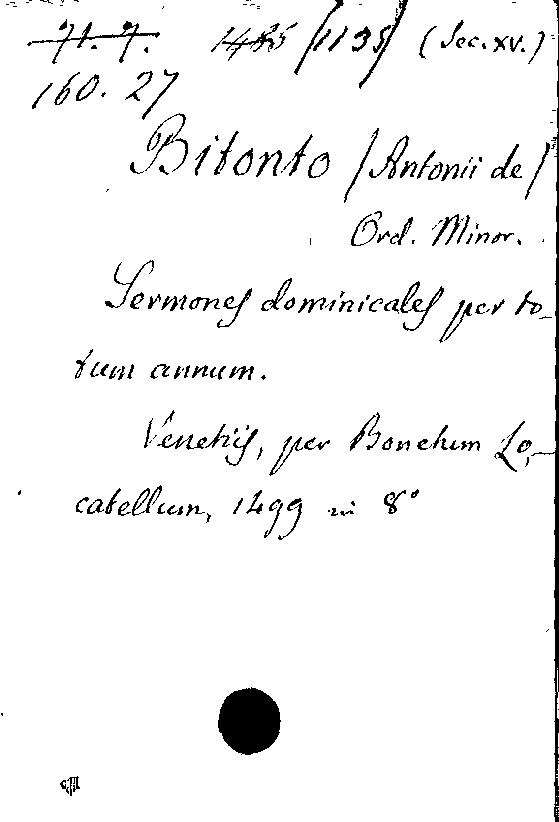 71. 7. 1485 /1135/ (Sec. xv.)
160. 27
Bitonto /Antonii de/
Ord. Minor.
Sermones dominicales per to-
tum annum.
Venetiis, per Bonetum Lo-
catellum, 1499 in 8°